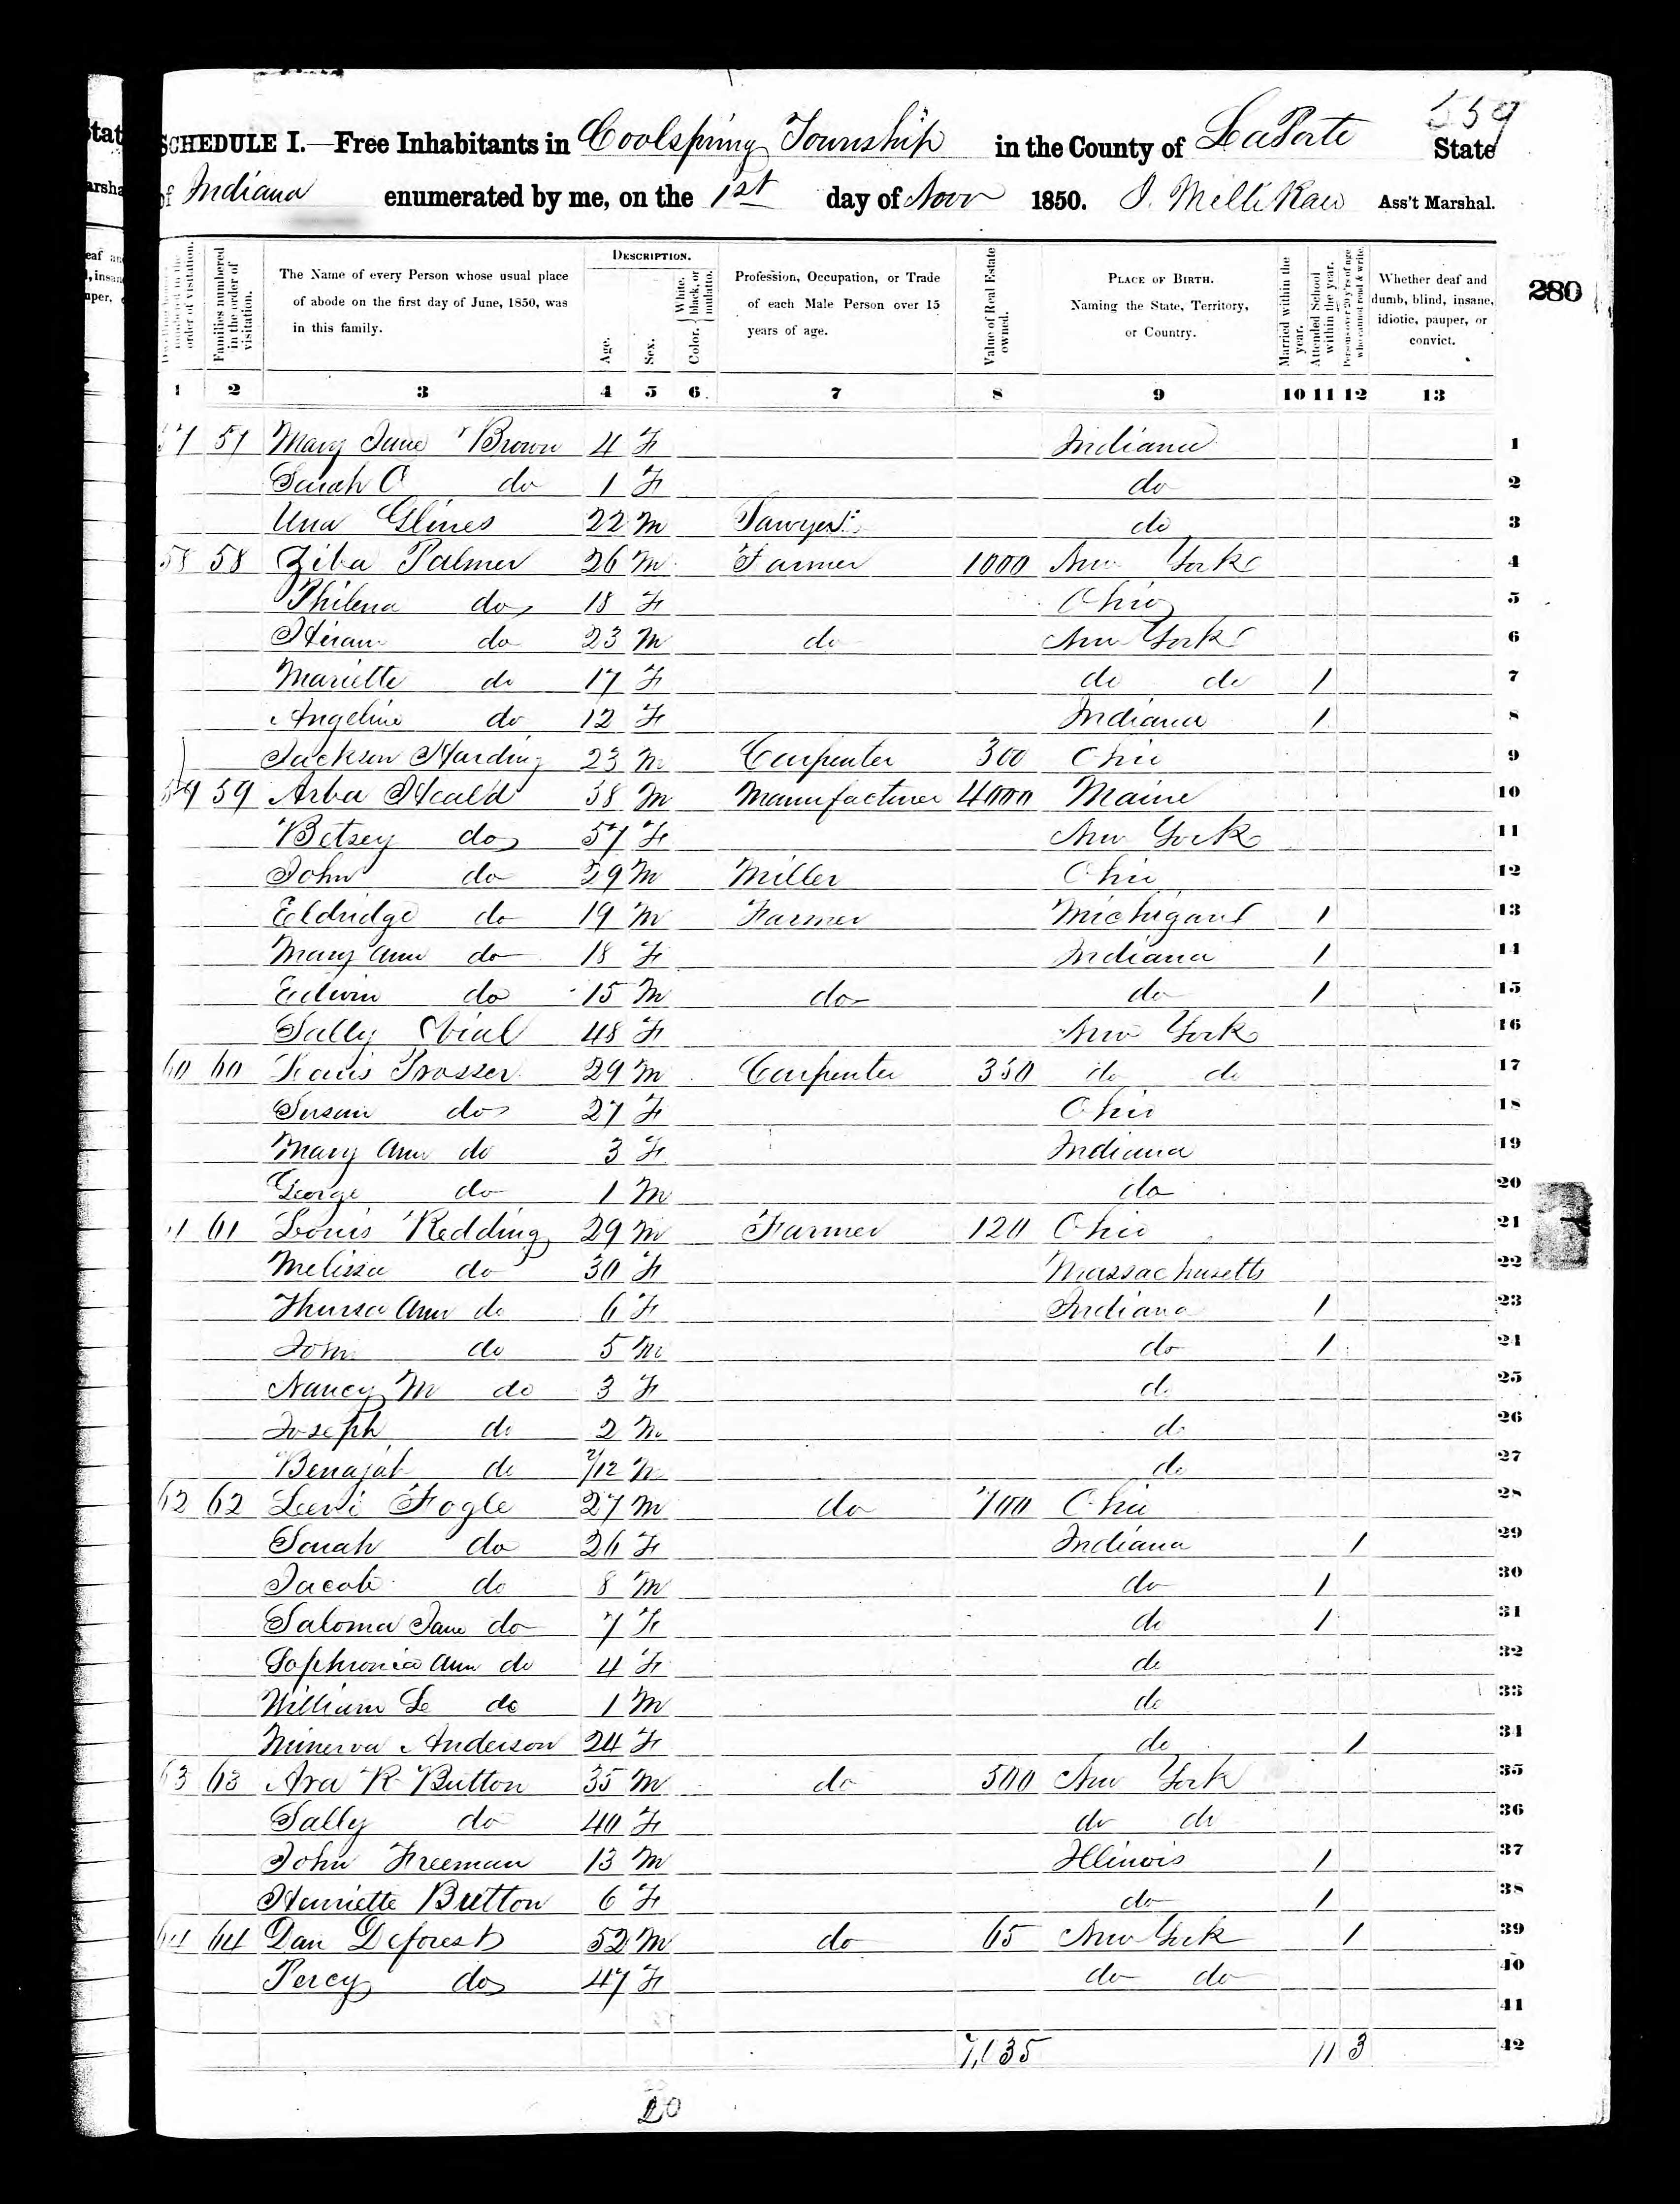 559
SCHEDULE I.—Free Inhabitants in Coolspring Township in the County of LaPorte State
of Indiana enumerated by me, on the 1st day of Novr 1850. J. Millikan Ass't Marshal.
280
order of visitation.
Families numbered in the order of visitation.
The Name of every Person whose usual place of abode on the first day of June, 1850, was in this family.
DESCRIPTION.
Age.
Sex.
Color. { White, black, or mulatto.
Profession, Occupation, or Trade of each Male Person over 15 years of age.
Value of Real Estate owned.
PLACE OF BIRTH. Naming the State, Territory, or Country.
Married within the year.
Attended School within the year.
Persons over 20 y'rs of age who cannot read & write.
Whether deaf and dumb, blind, insane, idiotic, pauper, or convict.
1 2 3 4 5 6 7 8 9 10 11 12 13
57 57 Mary Jane Brown 4 F Indiana 1
Sarah C do 1 F do 2
Glines 22 M Sawyer do 3
58 58 Ziba Palmer 26 M Farmer 1000 New York 4
Philena do 18 F Ohio 5
Hiram do 23 M do New York 6
Mariette do 17 F do do 1 7
Angeline do 12 F Indiana 1 8
Jackson Harding 23 M Carpenter 300 Ohio 9
59 59 Arba Heald 58 M Manufacturer 4000 Maine 10
Betsey do 57 F New York 11
John do 29 M Miller Ohio 12
Eldridge do 19 M Farmer Michigan 1 13
Mary Ann do 18 F Indiana 1 14
Edwin do 15 M do do 1 15
Sally Vial 48 F New York 16
60 60 Prosser 29 M Carpenter 350 do do 17
Susan do 27 F Ohio 18
Mary Ann do 3 F Indiana 19
George do 1 M do 20
61 61 Louis Redding 29 M Farmer 120 Ohio 21
Melissa do 30 F Massachusetts 22
Thursa Ann do 6 F Indiana 1 23
John do 5 M do 1 24
Nancy M do 3 F do 25
Joseph do 2 M do 26
Benajah do /12 M do 27
62 62 Levi Fogle 27 M do 700 Ohio 28
Sarah do 26 F Indiana 1 29
Jacob do 8 M do 1 30
Saloma Jane do 7 F do 1 31
Sophronia Ann do 4 F do 32
William L do 1 M do 33
Minerva Anderson 24 F do 1 34
63 63 Ara R Button 35 M do 500 New York 35
Sally do 40 F do do 36
John Freeman 13 M Illinois 1 37
Henriette Button 6 F do 1 38
64 64 Dan Deforest 52 M do 65 New York 1 39
Percy do 47 F do do 40
41
7,135 11 3 42
20